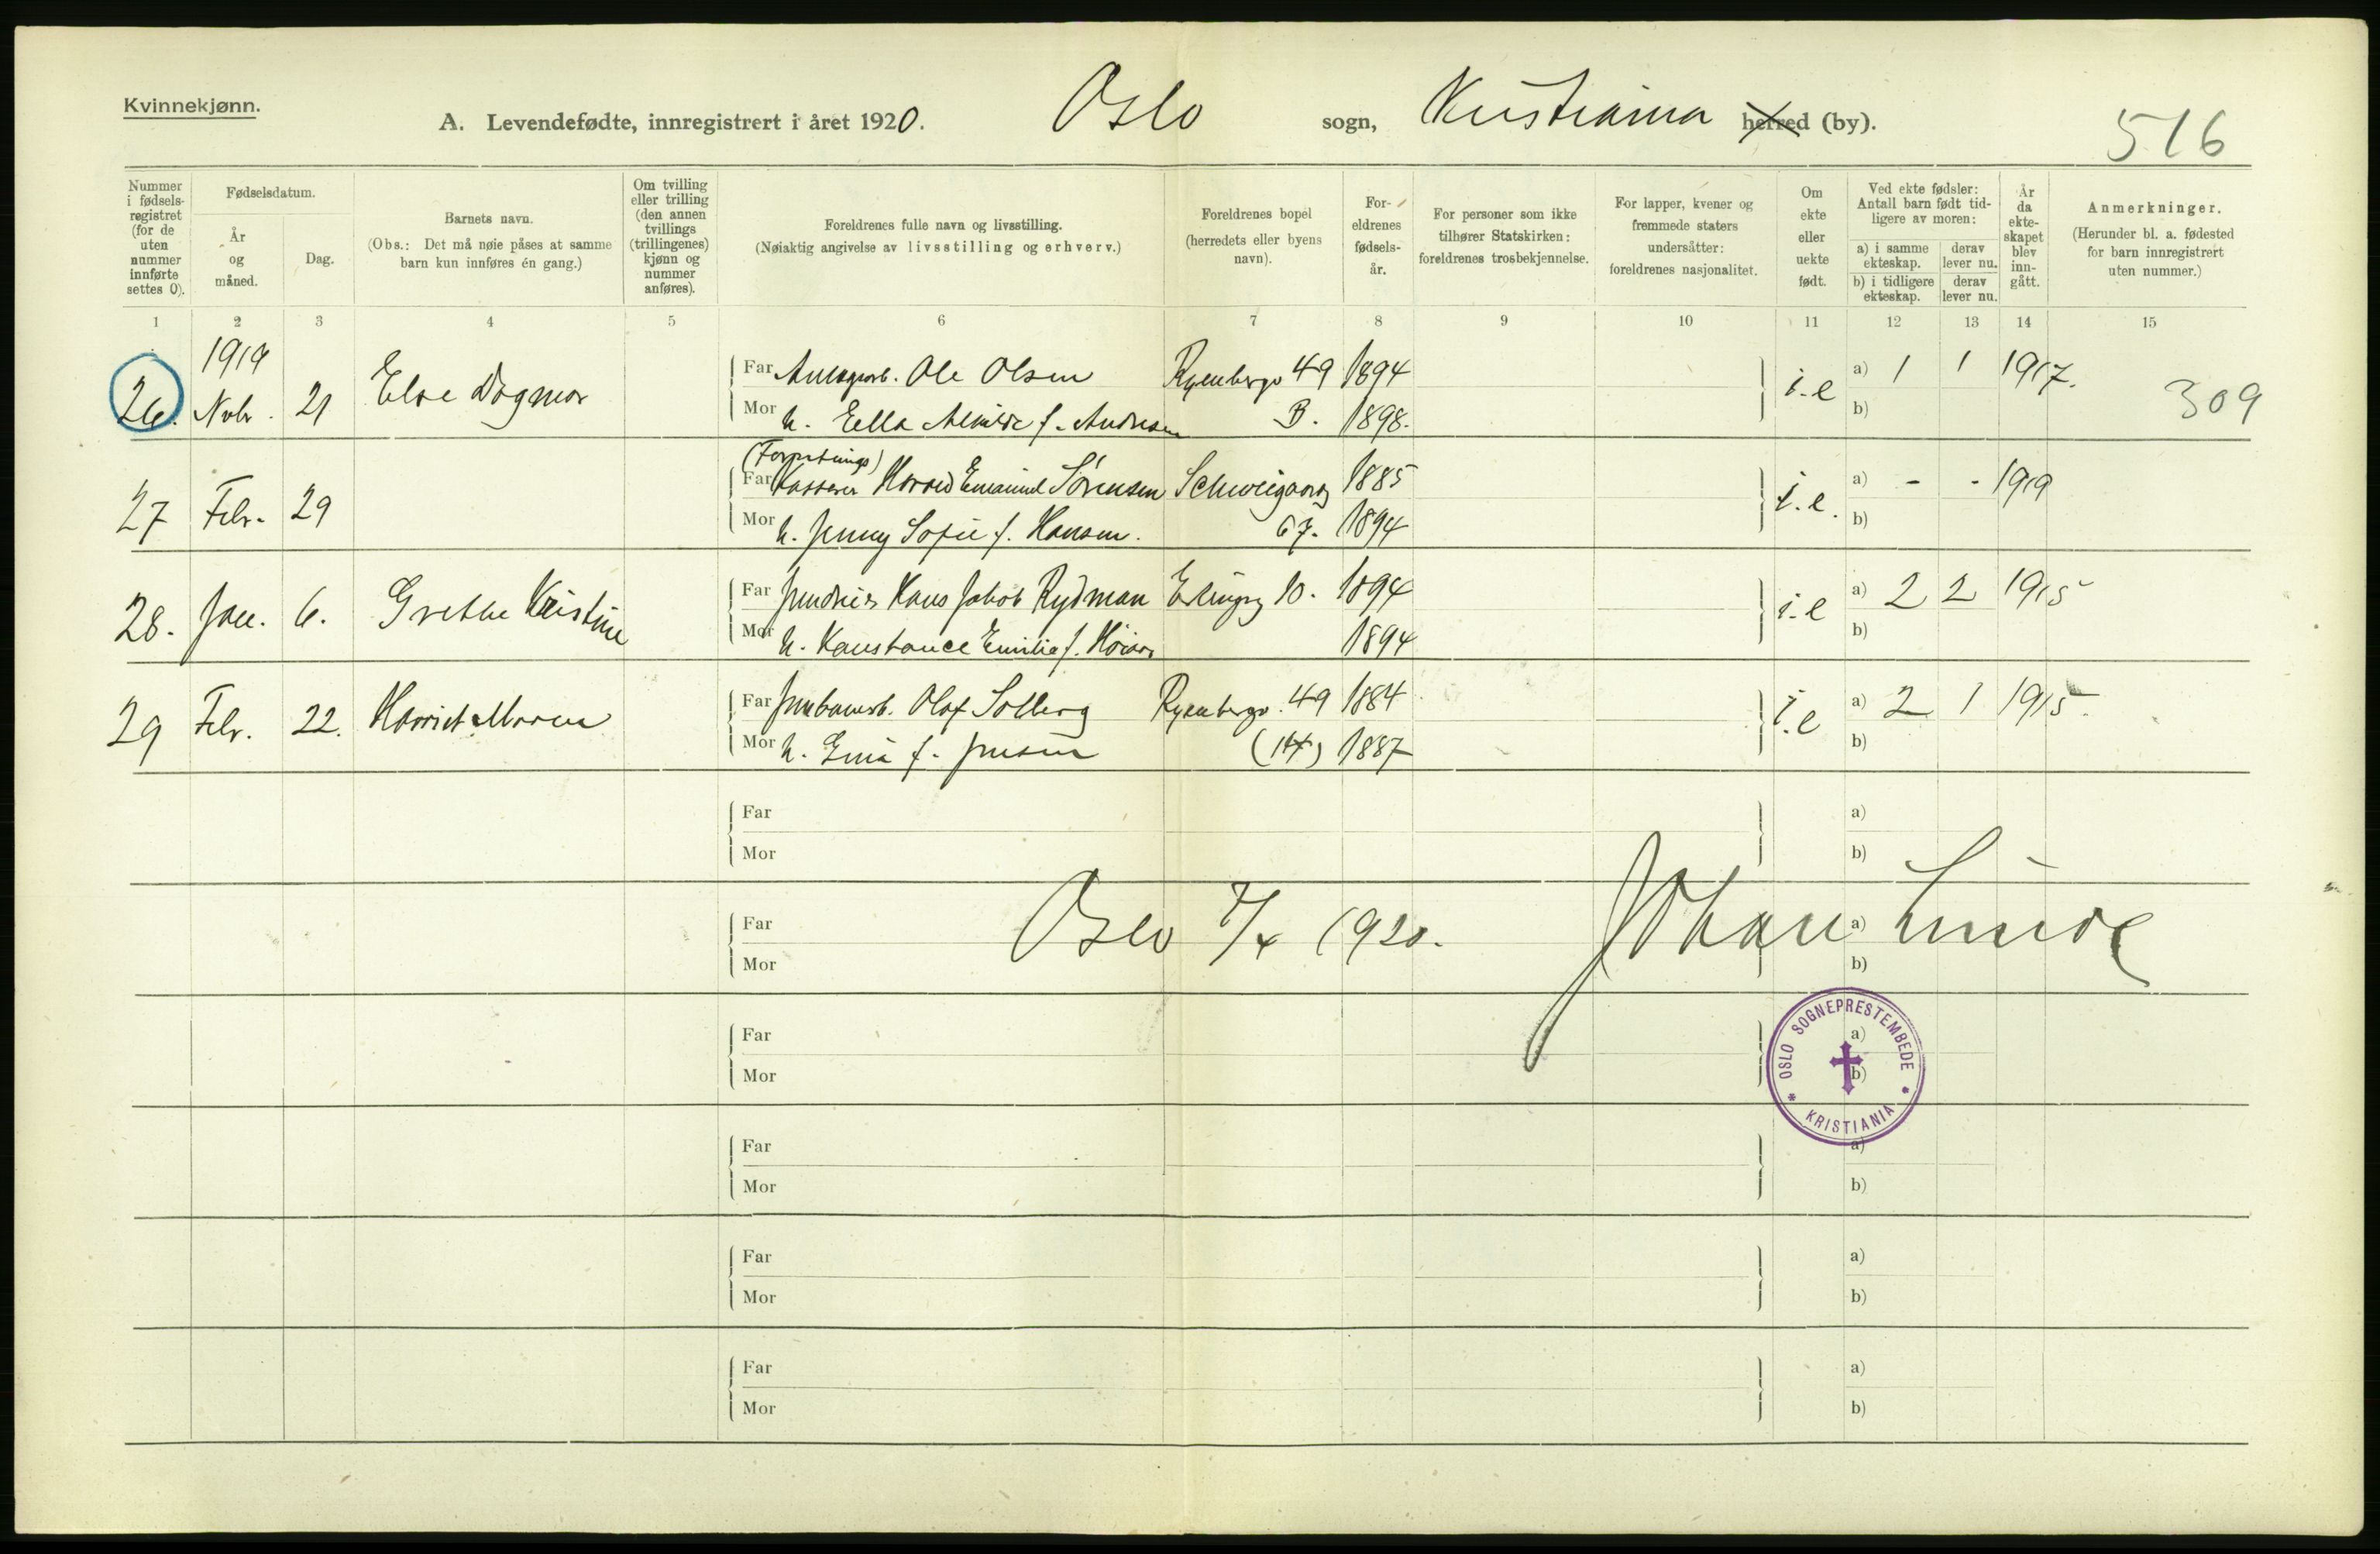 Kvinnekjønn.
A. Levendefødte, innregistrert i året 1920. Oslo sogn, Kristiania herred (by).
516
Nummer i fødsels-registret (for de uten nummer innførte settes 0).
Fødselsdatum.
År og måned.
Dag.
Barnets navn.
(Obs.: Det må nøie påses at samme barn kun innføres én gang.)
Om tvilling eller trilling (den annen tvillings (trillingenes) kjønn og nummer anføres).
Foreldrenes fulle navn og livsstilling.
(Nøiaktig angivelse av livsstilling og erhverv.)
Foreldrenes bopel (herredets eller byens navn).
For-eldrenes fødsels-år.
For personer som ikke tilhører Statskirken: foreldrenes trosbekjennelse.
For lapper, kvener og fremmede staters undersåtter: foreldrenes nasjonalitet.
Om ekte eller uekte født.
Ved ekte fødsler: Antall barn født tid-ligere av moren:
a) i samme ekteskap.
derav lever nu.
b) i tidligere ekteskap.
derav lever nu.
År da ekte-skapet blev inn-gått.
Anmerkninger.
(Herunder bl. a. fødested for barn innregistrert uten nummer.)
1 2 3 4 5 6 7 8 9 10 11 12 13 14 15
1919
26. Novbr. 21 Else Dagmar Far Ole Olsen Ryenbergv 49 1894 i.e a) 1 1 1917.
Mor h. Ella f. Andresen B. 1898. b) 309
(Forpetnings)
27 Febr. 29 Far Kasserer Harald Emanuel Sørensen Schweigaardsg 1885 i.e. a) - - 1919
Mor h. Jenny Sofie f. Hansen. 67. 1894 b)
28. Jan. 6. Grethe Kristine Far Hans Jakob Rydman Erlingsg 10. 1894 i.e a) 2 2 1915
Mor h. Konstance Emilie f. 1894 b)
29 Febr. 22. Harriet Maren Far Jernbanearb. Olaf Solberg Ryenbergv. 49 1884 i.e a) 2 1 1915.
Mor h. f. Jensen (14) 1887 b)
Far a)
Mor b)
Far Oslo 7/4 1920. Johan Lunde a)
Mor b)
Far a)
Mor b)
OSLO SOGNEPRESTEMBEDE * KRISTIANIA *
Far a)
Mor b)
Far a)
Mor b)
Far a)
Mor b)